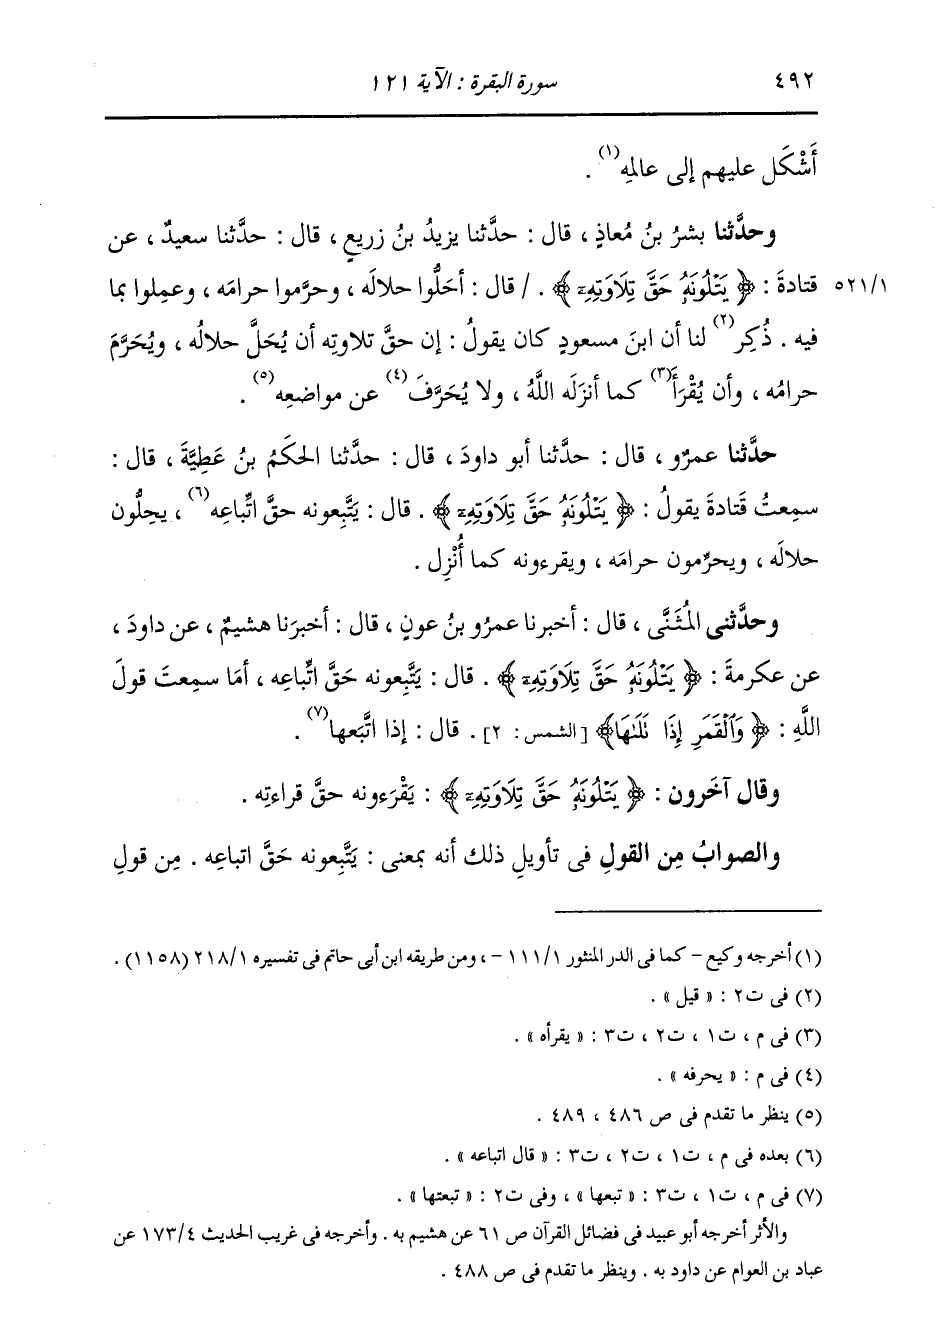 ٤٩٢ سورة البقرة : الآية ١٢١
أَشْكَل عليهم إلى عالمِه(١) .
وحدَّثنا بشرُ بنُ مُعاذٍ ، قال : حدَّثنا يزيدُ بنُ زريعٍ ، قال : حدَّثنا سعيدٌ ، عن
٥٢١/١ قتادةَ : ﴿ يَتْلُونَهُۥ حَقَّ تِلَاوَتِهِۦ ﴾ . / قال : أحَلُّوا حلالَه ، وحرَّموا حرامَه ، وعمِلوا بما
فيه . ذُكِر(٢) لنا أن ابنَ مسعودٍ كان يقولُ : إن حقَّ تلاوتِه أن يُحَلَّ حلالُه ، ويُحَرَّمَ
حرامُه ، وأن يُقْرَأَ(٣) كما أنزَله اللَّهُ ، ولا يُحَرَّفَ(٤) عن مواضعِه(٥) .
حدَّثنا عمرٌو ، قال : حدَّثنا أبو داودَ ، قال : حدَّثنا الحكَمُ بنُ عَطِيَّةَ ، قال :
سمِعتُ قَتادةَ يقولُ : ﴿ يَتْلُونَهُۥ حَقَّ تِلَاوَتِهِۦٓ ﴾ . قال : يَتَّبِعونه حقَّ اتِّباعِه(٦) ، يحِلُّون
حلالَه ، ويحرِّمون حرامَه ، ويقرءونه كما أُنْزِل .
وحدَّثنى المُثَنَّى ، قال : أخبرنا عمرُو بنُ عونٍ ، قال : أخبرَنا هشيمٌ ، عن داودَ ،
عن عكرمةَ : ﴿ يَتْلُونَهُۥ حَقَّ تِلَاوَتِهِۦٓ ﴾ . قال : يَتَّبِعونه حَقَّ اتِّباعِه ، أمَا سمِعتَ قولَ
اللَّهِ : ﴿ وَٱلْقَمَرِ إِذَا تَلَىٰهَا﴾ [ الشمس : ٢] . قال : إذا اتَّبَعها(٧) .
وقال آخَرون : ﴿ يَتْلُونَهُۥ حَقَّ تِلَاوَتِهِۦٓ ﴾ : يَقْرَءونه حقَّ قراءتِه .
والصوابُ مِن القولِ فى تأويلِ ذلك أنه بمعنى : يَتَّبِعونه حَقَّ اتباعِه . مِن قولِ
(١) أخرجه وكيع – كما فى الدر المنثور ١١١/١ – ، ومن طريقه ابن أبى حاتم فى تفسيره ٢١٨/١ (١١٥٨) .
(٢) فى ت٢ : « قيل » .
(٣) فى م ، ت١ ، ت٢ ، ت٣ : « يقرأه » .
(٤) فى م : « يحرفه » .
(٥) ينظر ما تقدم فى ص ٤٨٦ ، ٤٨٩ .
(٦) بعده فى م ، ت١ ، ت٢ ، ت٣ : « قال اتباعه » .
(٧) فى م ، ت١ ، ت٣ : « تبعها » ، وفى ت٢ : « تبعتها » .
والأثر أخرجه أبو عبيد فى فضائل القرآن ص ٦١ عن هشيم به . وأخرجه فى غريب الحديث ١٧٣/٤ عن
عباد بن العوام عن داود به . وينظر ما تقدم فى ص ٤٨٨ .